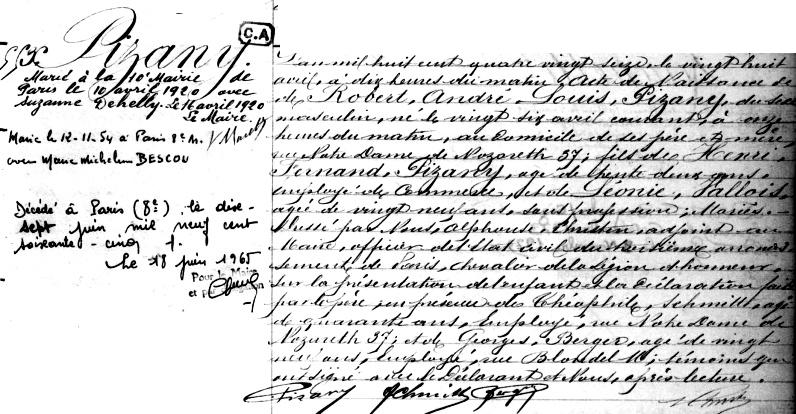 553
Pizany.
C.A
Marié à la 10e Mairie de
Paris le 10 avril 1920 avec
Suzanne Dehelly. Le 16 avril 1920
Le Maire.
Marié le 12-11-54 à Paris 8e A.
avec Marie Micheline BESCOU
Décédé à Paris (8e) le dix-
sept juin mil neuf cent
soixante-cinq
Le 18 juin 1965
Pour le Maire
et par
L'an mil huit cent quatre vingt seize, le vingt huit
avril, à dix heures du matin, Acte de Naissance de
de Robert, André, Louis, Pizany, du sexe
masculin, né le vingt six avril courant, à onze
heures du matin, au domicile de ses père et mère,
rue Notre Dame de Nazareth 37; fils de Henri
Fernand, Pizany, agé de trente deux ans,
employé de Commerce, et de Léonie, Vallois,
agée de vingt neuf ans, sans profession; Mariés.
Dressé par Nous, Alphonse, Christin, adjoint au
Maire, officier de l'Etat civil du troisième arrondis
sement de Paris, chevalier de la Légion d'honneur,
sur la présentation de l'enfant et la déclaration faite
par le père, en présence de Théophile, Schmitt, agé
de quarante ans, Employé, rue Notre Dame de
Nazareth 37; et de Georges, Berger, agé de vingt
neuf ans, employé, rue Blondel 10; témoins qui
ont signé avec le Déclarant et Nous, après lecture.
Pizany Schmitt